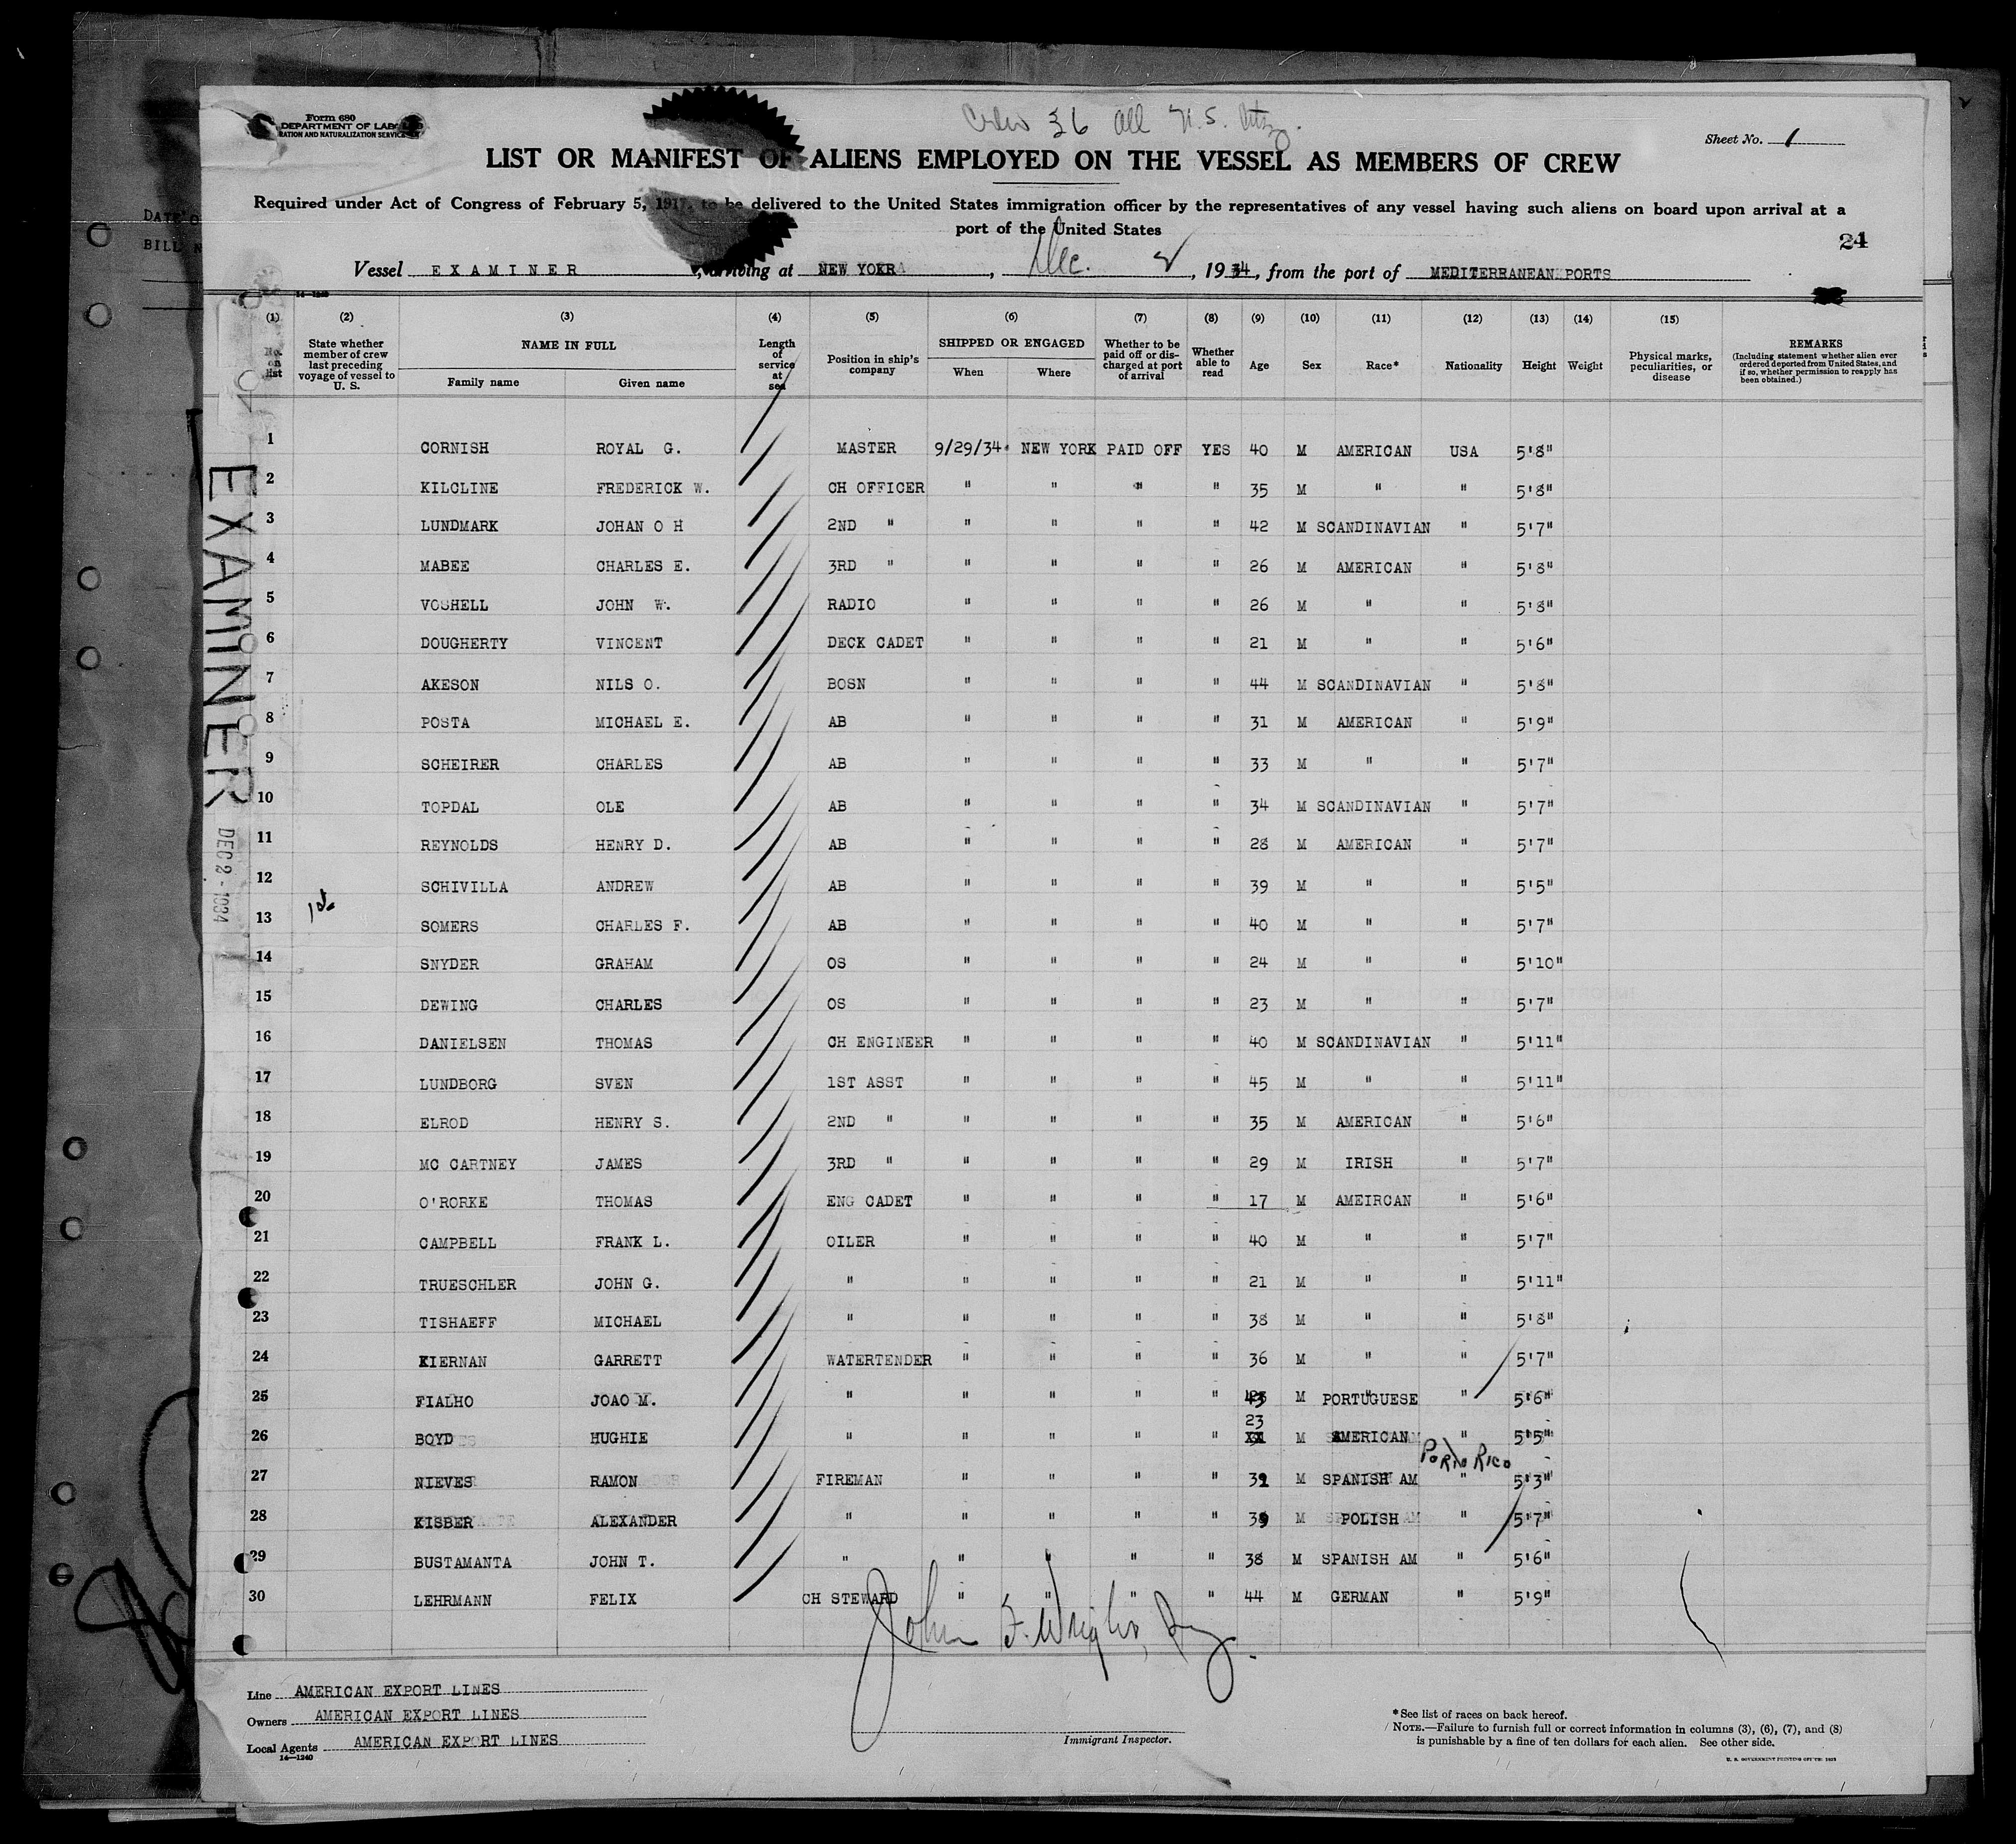 Form 680
DEPARTMENT OF LABOR
RATION AND NATURALIZATION SERVICE
Crew 36 all U.S. Citz.
Sheet No. 1
LIST OR MANIFEST OF ALIENS EMPLOYED ON THE VESSEL AS MEMBERS OF CREW
Required under Act of Congress of February 5, 1917, to be delivered to the United States immigration officer by the representatives of any vessel having such aliens on board upon arrival at a
port of the United States
24
Vessel EXAMINER, arriving at NEW YORK, Dec. 2, 1934, from the port of MEDITERRANEAN PORTS
14—1240
(1) (2) (3) (4) (5) (6) (7) (8) (9) (10) (11) (12) (13) (14) (15)
No. on list State whether member of crew last preceding voyage of vessel to U. S. NAME IN FULL Family name Given name Length of service at sea Position in ship's company SHIPPED OR ENGAGED When Where Whether to be paid off or discharged at port of arrival Whether able to read Age Sex Race* Nationality Height Weight Physical marks, peculiarities, or disease REMARKS (Including statement whether alien ever ordered deported from United States, and if so, whether permission to reapply has been obtained.)
1 CORNISH ROYAL G. MASTER 9/29/34 NEW YORK PAID OFF YES 40 M AMERICAN USA 5'8"
2 KILCLINE FREDERICK W. CH OFFICER " " " " 35 M " " 5'8"
3 LUNDMARK JOHAN O H 2ND " " " " " 42 M SCANDINAVIAN " 5'7"
4 MABEE CHARLES E. 3RD " " " " " 26 M AMERICAN " 5'8"
5 VOSHELL JOHN W. RADIO " " " " 26 M " " 5'8"
6 DOUGHERTY VINCENT DECK CADET " " " " 21 M " " 5'6"
7 AKESON NILS O. BOSN " " " " 44 M SCANDINAVIAN " 5'8"
8 POSTA MICHAEL E. AB " " " " 31 M AMERICAN " 5'9"
9 SCHEIRER CHARLES AB " " " " 33 M " " 5'7"
10 TOPDAL OLE AB " " " " 34 M SCANDINAVIAN " 5'7"
11 REYNOLDS HENRY D. AB " " " " 28 M AMERICAN " 5'7"
12 SCHIVILLA ANDREW AB " " " " 39 M " " 5'5"
13 SOMERS CHARLES F. AB " " " " 40 M " " 5'7"
14 SNYDER GRAHAM OS " " " " 24 M " " 5'10"
15 DEWING CHARLES OS " " " " 23 M " " 5'7"
16 DANIELSEN THOMAS CH ENGINEER " " " " 40 M SCANDINAVIAN " 5'11"
17 LUNDBORG SVEN 1ST ASST " " " " 45 M " " 5'11"
18 ELROD HENRY S. 2ND " " " " " 35 M AMERICAN " 5'6"
19 MC CARTNEY JAMES 3RD " " " " " 29 M IRISH " 5'7"
20 O'RORKE THOMAS ENG CADET " " " " 17 M AMEIRCAN " 5'6"
21 CAMPBELL FRANK L. OILER " " " " 40 M " " 5'7"
22 TRUESCHLER JOHN G. " " " " " 21 M " " 5'11"
23 TISHAEFF MICHAEL " " " " " 38 M " " 5'8"
24 KIERNAN GARRETT WATERTENDER " " " " 36 M " " 5'7"
25 FIALHO JOAO M. " " " " " 43 M PORTUGUESE " 5'6"
26 BOYD HUGHIE " " " " " 23 M AMERICAN " 5'5"
PORTO RICO
27 NIEVES RAMON FIREMAN " " " " 39 M SPANISH AM " 5'3"
28 KISBER ALEXANDER " " " " " 39 M POLISH " 5'7"
29 BUSTAMANTA JOHN T. " " " " " 38 M SPANISH AM " 5'6"
30 LEHRMANN FELIX CH STEWARD " " " " 44 M GERMAN " 5'9"
EXAMINER
DEC 2 - 1934
Line AMERICAN EXPORT LINES
Owners AMERICAN EXPORT LINES
Local Agents AMERICAN EXPORT LINES
14—1240
Immigrant Inspector.
*See list of races on back hereof.
NOTE.—Failure to furnish full or correct information in columns (3), (6), (7), and (8)
is punishable by a fine of ten dollars for each alien. See other side.
U. S. GOVERNMENT PRINTING OFFICE